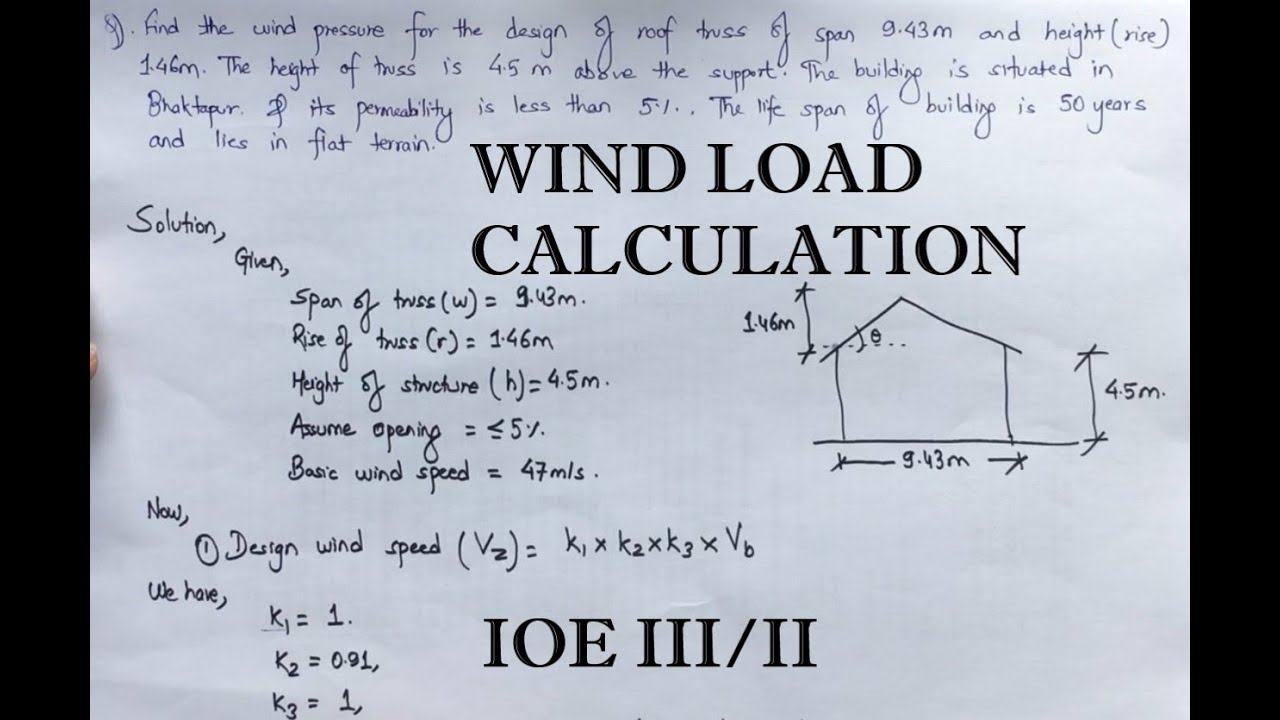 Q). Find the wind pressure for the design of roof truss of span 9.43m and height (rise)
1.46m. The height of truss is 4.5 m above the support. The building is situated in
Bhaktapur. & its permeability is less than 5%. The life span of building is 50 years
and lies in flat terrain.
WIND LOAD
CALCULATION
Solution,
Given,
Span of truss (w) = 9.43m.
Rise of truss (r) = 1.46m
Height of structure (h) = 4.5m.
Assume opening = ≤ 5%.
Basic wind speed = 47m/s.
1.46m
θ
4.5m.
9.43m
Now,
① Design wind speed (Vz) = k1 x k2 x k3 x Vb
We have,
K1 = 1.
K2 = 0.91,
K3 = 1,
IOE III/II